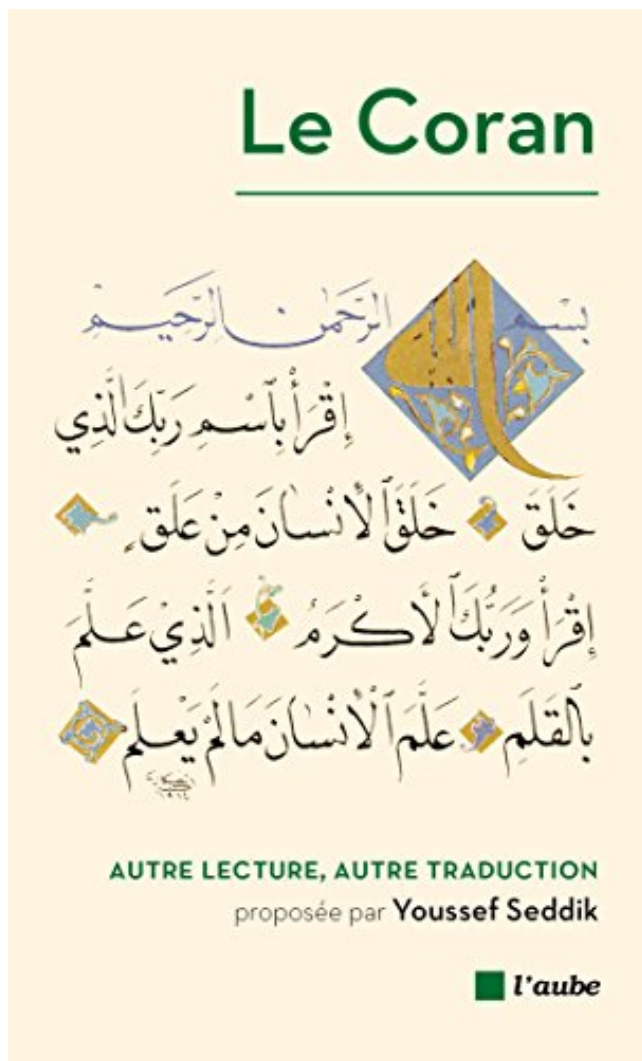 Le Coran
بِسْمِ اللّٰهِ الرَّحْمٰنِ الرَّحِيْمِ
إِقْرَأْ بِٱسْمِ رَبِّكَ الَّذِي
خَلَقَ خَلَقَ ٱلْأِنْسٰانَ مِنْ عَلَقٍ
إِقْرَأْ وَرَبُّكَ ٱلْأَكْرَمُ الَّذِيْ عَلَّمَ
بِٱلْقَلَمِ عَلَّمَ ٱلْأِنْسٰانَ مَا لَمْ يَعْلَمْ
AUTRE LECTURE, AUTRE TRADUCTION
proposée par Youssef Seddik
l'aube